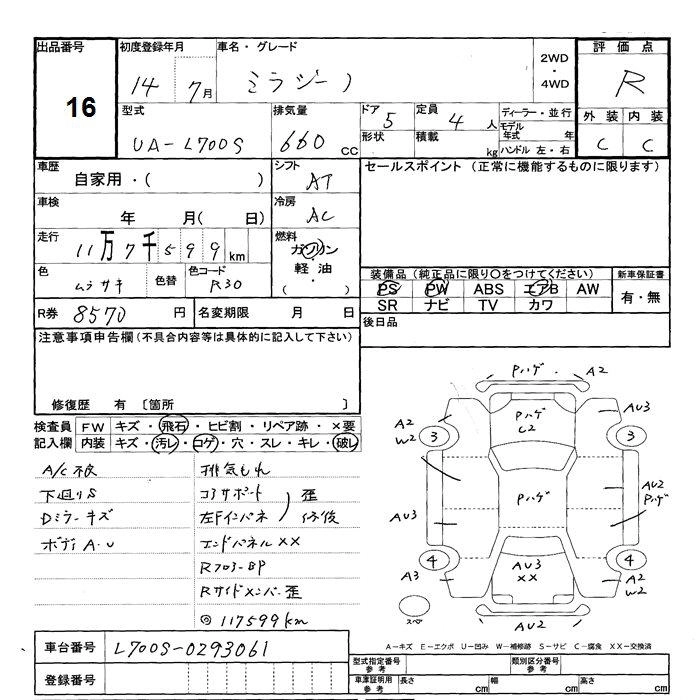 出品番号
16
初度登録年月
14 7月
車名・グレード
ミラジーノ
2WD
・
4WD
評価点
R
型式
UA-L700S
排気量
660 CC
ドア 5
形状
定員 4 人
積載 kg
ディーラー・並行
モデル年式 年
ハンドル 左・右
外装 内装
C C
車歴
自家用・( )
シフト
AT
セールスポイント (正常に機能するものに限ります)
車検
年 月( 日)
冷房
AC
走行
11万7千599km
燃料
ガソリン
軽油
( ・ )
色
ムラサキ
色替
色コード
R30
装備品(純正品に限り○をつけてください)
PS PW ABS エアB AW
SR ナビ TV カワ
新車保証書
有・無
R券 8570 円
名変期限 月 日
後日品
注意事項申告欄(不具合内容等は具体的に記入して下さい)
修復歴 有 〔箇所 〕
検査員記入欄
FW キズ・飛石・ヒビ割・リペア跡・×要
内装 キズ・汚レ・コゲ・穴・スレ・キレ・破レ
A/C不良
下廻りS
Dミラーキズ
ボディA・U
排気もれ
コアサポート
左Fインパネ
歪
修後
エンドパネルXX
RフロアーBP
Rサイドメンバー歪
◎117599km
Pハゲ A2
A2
W2
3
Pハゲ
C2
AU3
3
Pハゲ
AU2
Pハゲ
AU3
A3
4
AU3
XX
4
A2
W2
スペ
AU2
A-キズ E-エクボ U-凹み W-補修跡 S-サビ C-腐食 XX-交換済
車台番号 L700S-0293061
登録番号
型式指定番号 参考
類別区分番号 参考
車庫証明用 参考
長さ cm
幅 cm
高さ cm